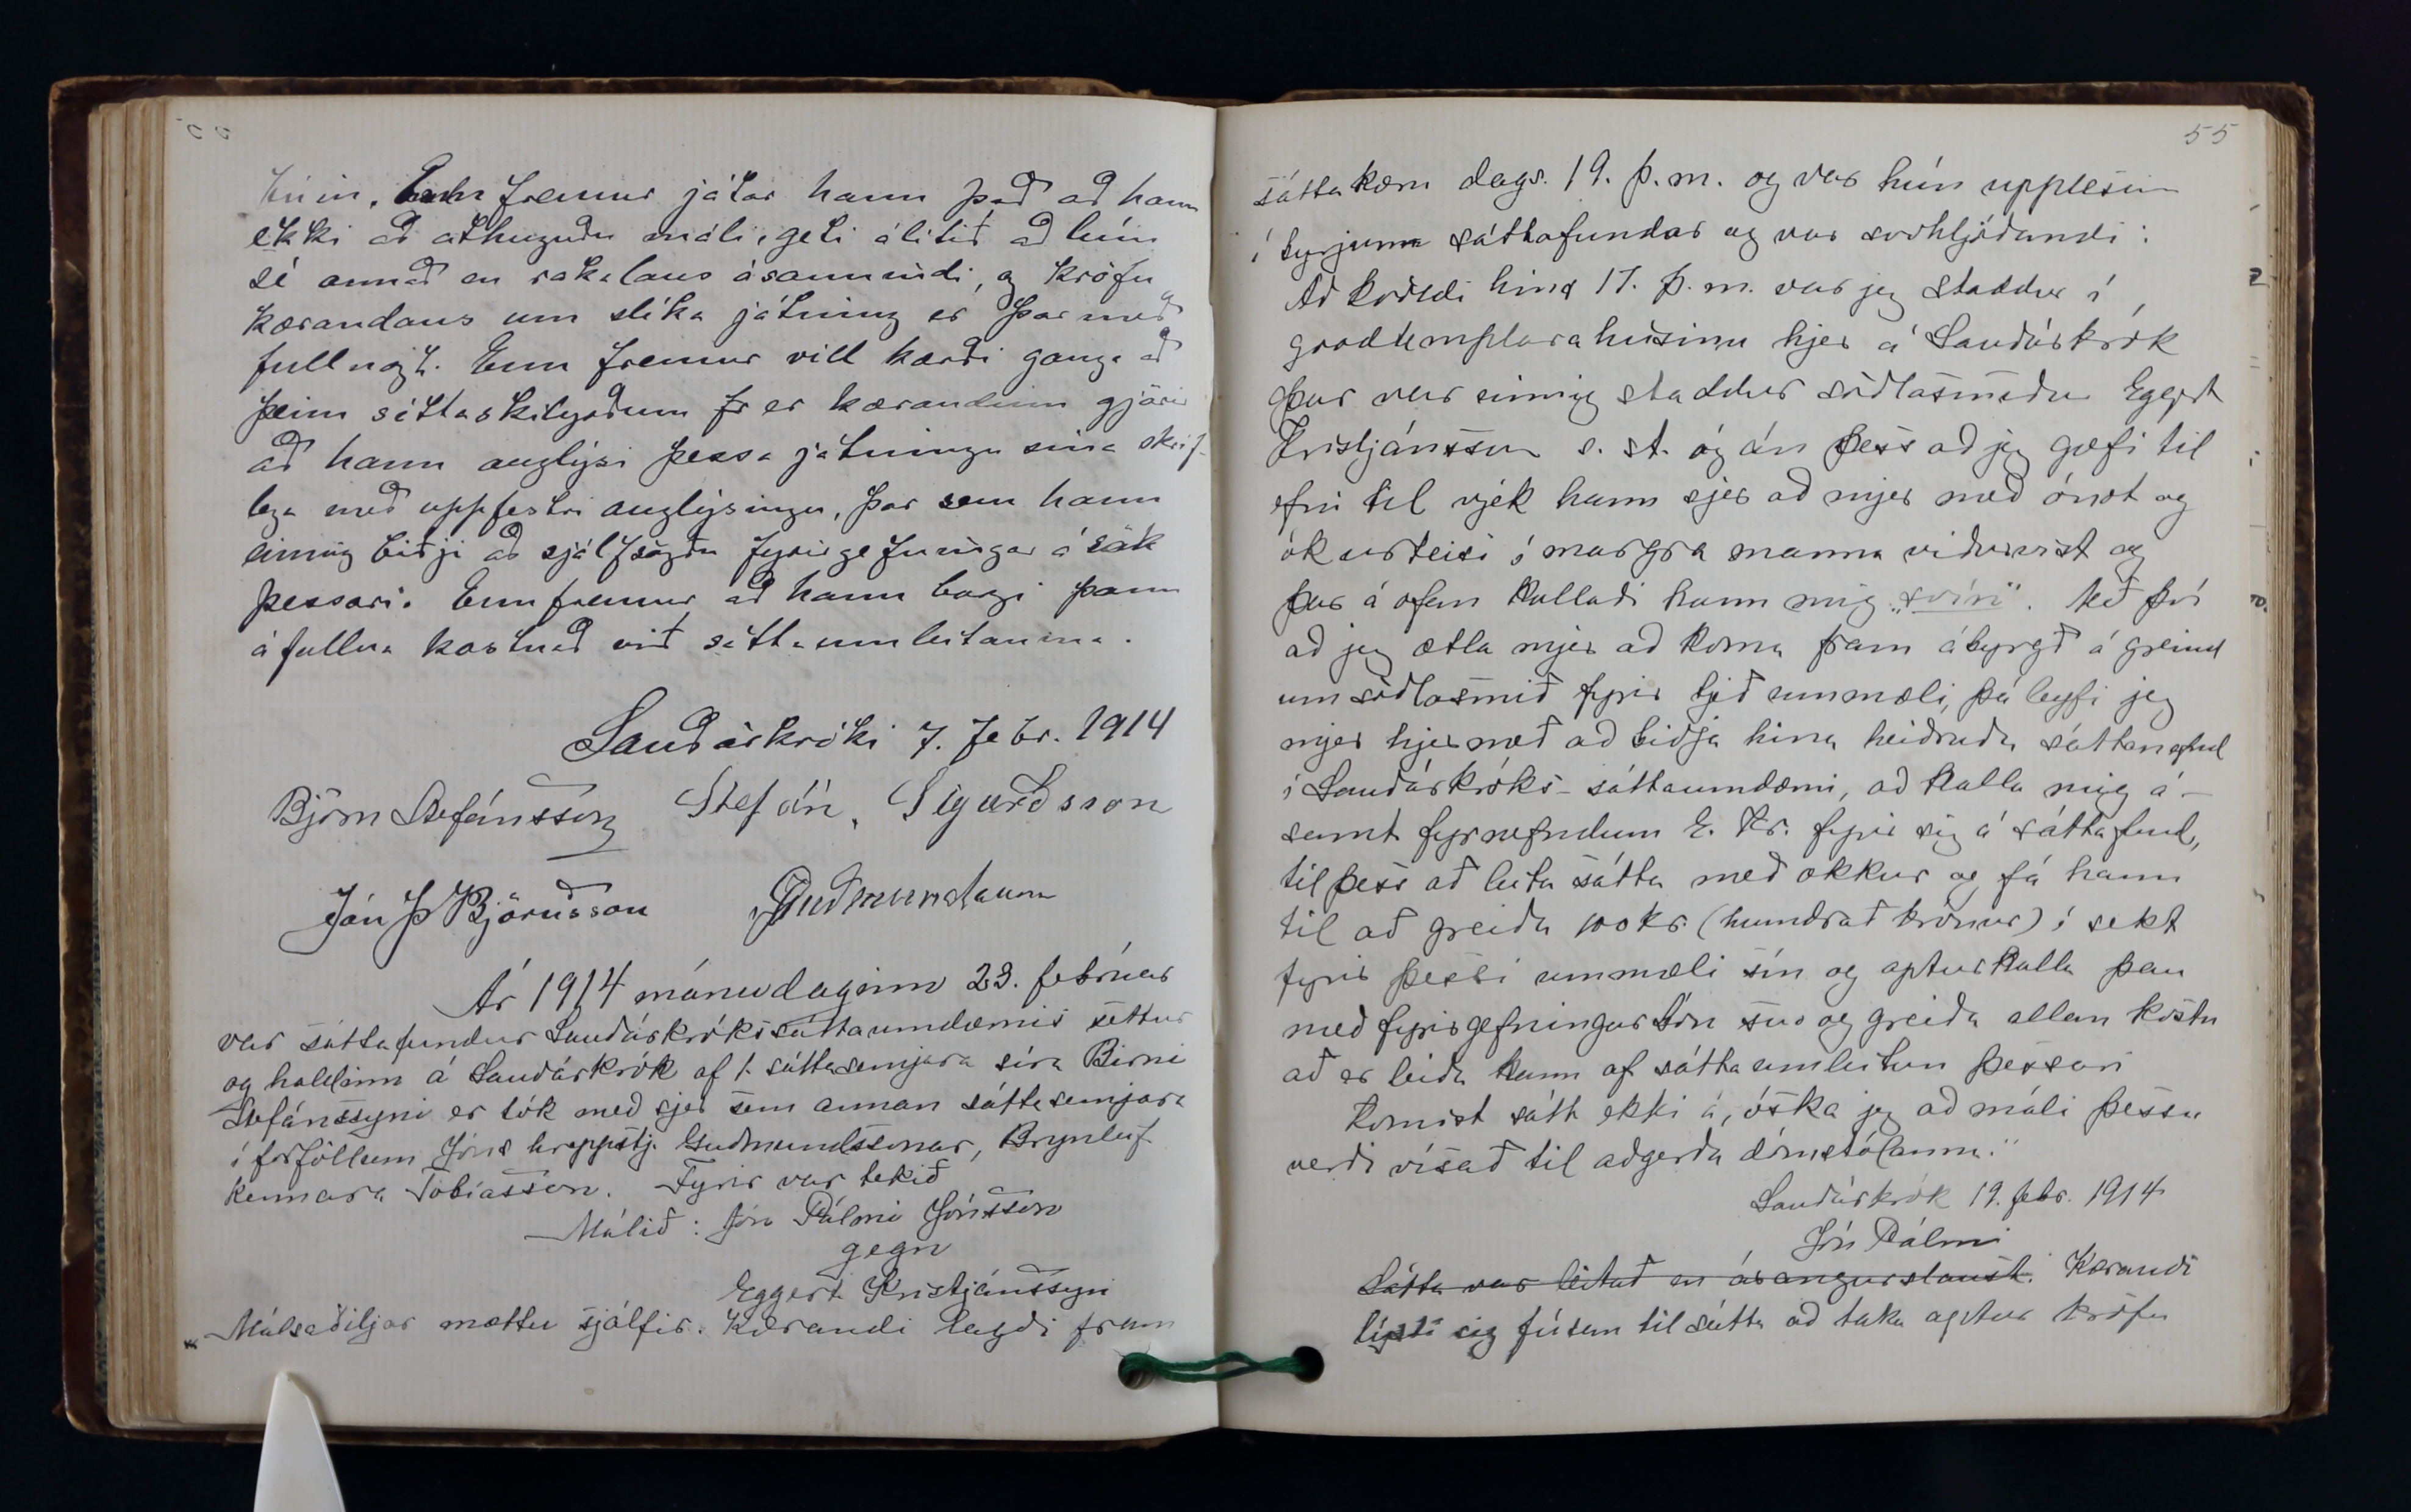 hún. Enn fremur játar hann það að hann
ekki að athuguðu máli, geti álitið að hún
sé annað en rakalaus ásannindi, og kröfu
kærandans um slíka játning er þar með
fullnægt. Enn fremur vill kærði ganga að
þeim sáttaskilyrðum fr er kærandinn gjörir
að hann auglýsi þessa játningu sína skrif-
lega með uppfestri auglýsingu, þar sem hann
einnig biðji að sjálfsögðu fyrirgefningar á sök
þessari. Enn fremur að hann borgi þann
áfallna kostnað við sáttaumleitanina.
Sauðárkróki 7. febr. 1914
Björn Stefánsson Stefán Sigurðsson
Jón Þ Björnsson
Ár 1914 mánudaginn 23. febrúar
var sáttafundur Sauðárkrókssáttaumdæmis settur
og haldinn á Sauðárkrók af 1. sáttasemjara síra Birni
Stefánssyni er tók með sjer sem annan sáttasemjara
í forföllum Jóns hreppstj. Guðmundssonar, Brynleif
kennara Tobíasson. Fyrir var tekið
Málið: Jón Pálmi Jónsson
gegn
Eggert Kristjánssyni
Málsaðiljar mættu sjálfir. Kærandi lagði fram
55
sáttakæru dags. 19. þ.m. og var hún upplesin
í byrjun sáttafundar og var svohljóðandi:
Að kvöldi hins 17. þ.m. var jeg staddur í
goodtemplarahúsinu hjer á Sauðárkrók
þar var einnig staddur söðlasmiður Eggert
Kristjánsson s. st. og án þess að jeg gæfi til
efni til vjek hann sjer að mjer með ónot og
ókurteisi í margra manna viðurvist og
þar á ofan kallaði hann mig „svín". Með því
að jeg ætla mjer að koma fram ábyrgð á greind
um söðlasmið fyrir tjeð ummæli, þá leyfi jeg
mjer hjermeð að biðja hina heiðruðu sáttanefnd
í Sauðárkróks-sáttaumdæmi, að kalla mig á-
samt fyrnefndum E. Kr. fyrir sig á sáttafund,
til þess að leita sátta með okkur og fá hann
til að greiða 100 kr. (hundrað krónur) í sekt
fyrir þessi ummæli sín og apturkalla þau
með fyrirgefningarbón svo og greiða allan kostn
að er leiða kann af sáttaumleitun þessari
Komist sátt ekki á, óska jeg að máli þessu
verði vísað til aðgerða dómstólanna."
Sauðárkrók 19. febr. 1914
Jón Pálmi
Sátta var leitað en árangurslaust. Kærandi
lýsti sig fúsan til sátta að taka aptur kröfu